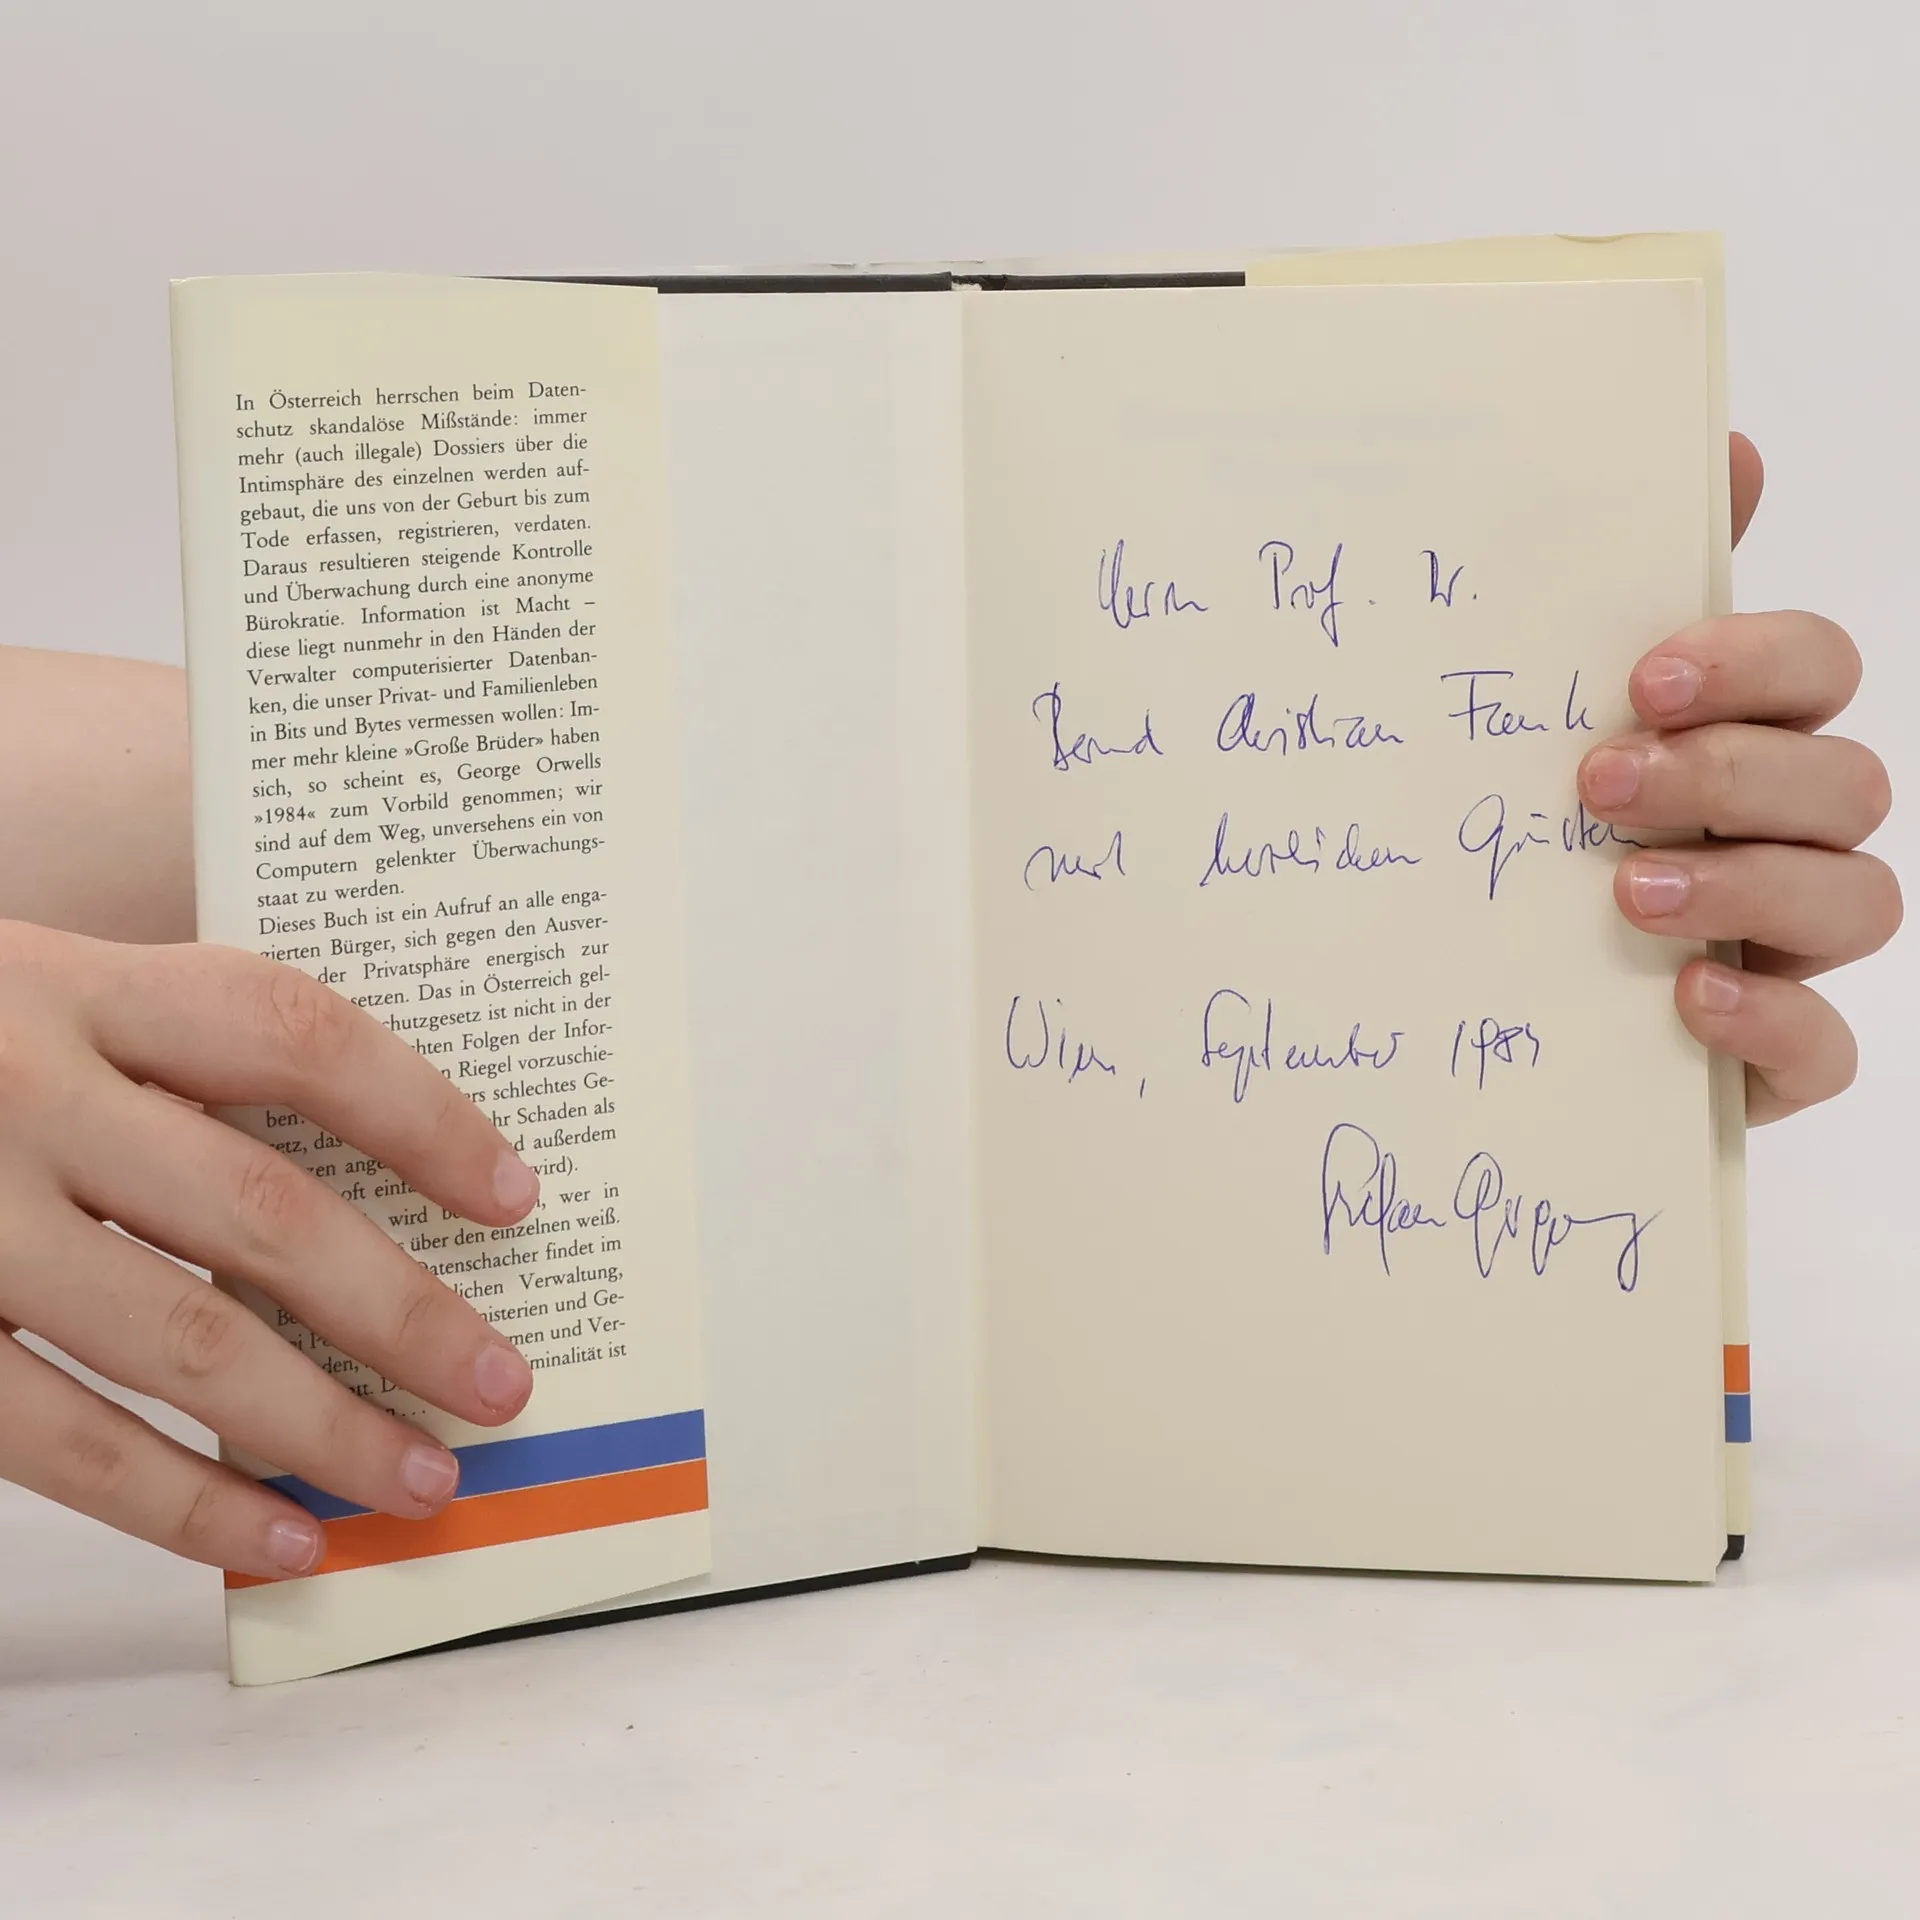 In Österreich herrschen beim Daten-
schutz skandalöse Mißstände: immer
mehr (auch illegale) Dossiers über die
Intimsphäre des einzelnen werden auf-
gebaut, die uns von der Geburt bis zum
Tode erfassen, registrieren, verdaten.
Daraus resultieren steigende Kontrolle
und Überwachung durch eine anonyme
Bürokratie. Information ist Macht –
diese liegt nunmehr in den Händen der
Verwalter computerisierter Datenban-
ken, die unser Privat- und Familienleben
in Bits und Bytes vermessen wollen: Im-
mer mehr kleine »Große Brüder» haben
sich, so scheint es, George Orwells
»1984« zum Vorbild genommen; wir
sind auf dem Weg, unversehens ein von
Computern gelenkter Überwachungs-
staat zu werden.
Dieses Buch ist ein Aufruf an alle enga-
gierten Bürger, sich gegen den Ausver-
der Privatsphäre energisch zur
setzen. Das in Österreich gel-
chutzgesetz ist nicht in der
hten Folgen der Infor-
Riegel vorzuschie-
ben. schlechtes Ge-
setz, das hr Schaden als
außerdem
wird).
oft wer in
wird über den einzelnen weiß.
Datenschacher findet im
lichen Verwaltung,
nisterien und Ge-
men und Ver-
iminalität ist
Herrn Prof. Dr.
Bernd Christian Funk
mit herzlichen Grüßen
Wien, September 1984